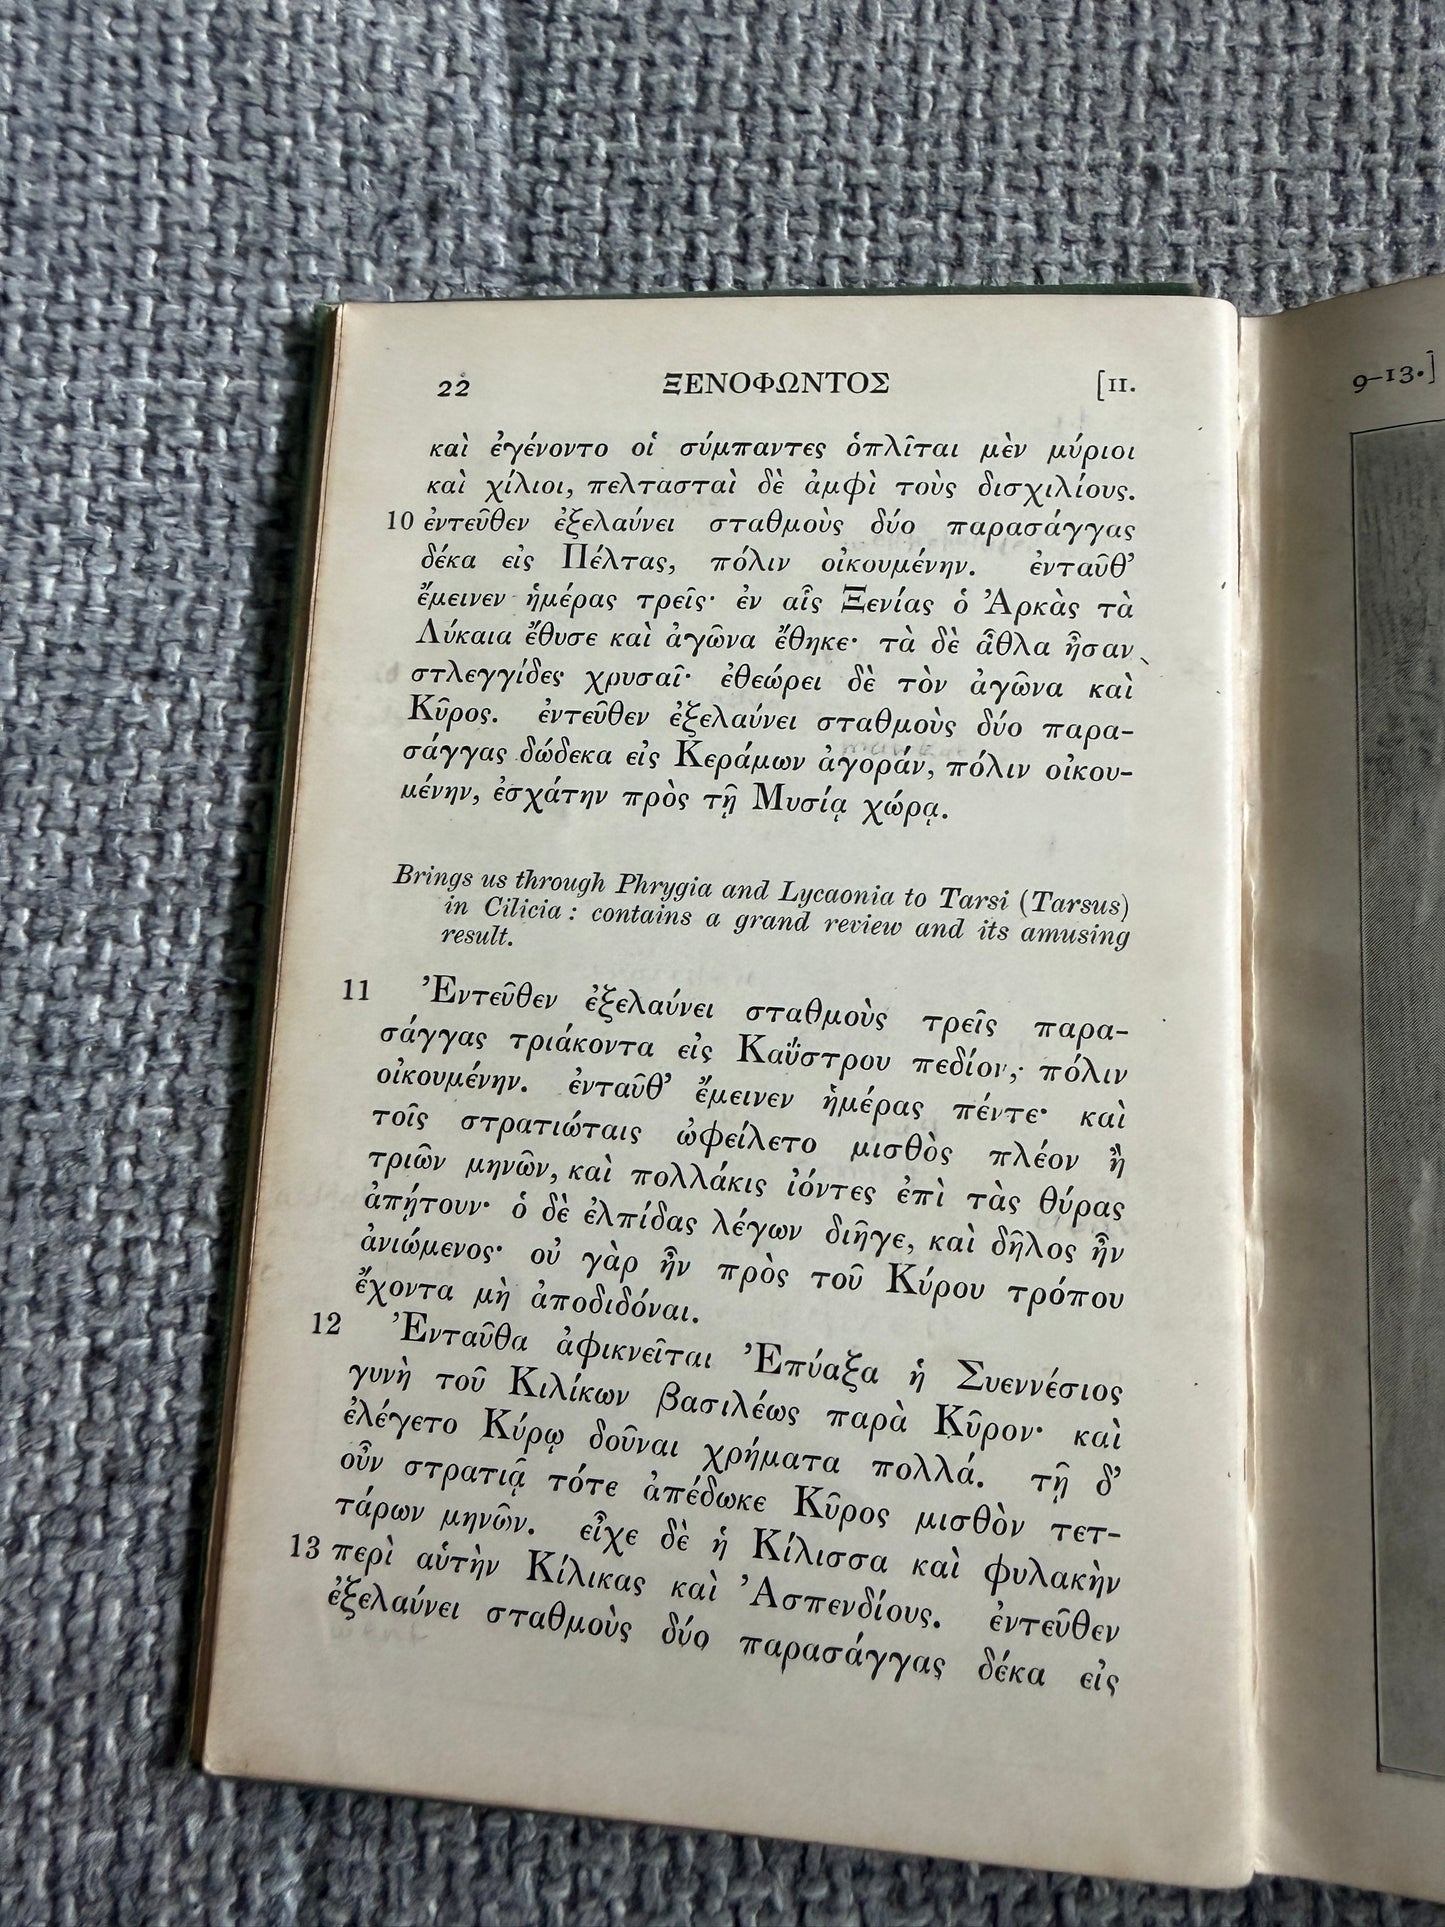 22 ΞΕΝΟΦΩΝΤΟΣ [II.
καὶ ἐγένοντο οἱ σύμπαντες ὁπλῖται μὲν μύριοι
καὶ χίλιοι, πελτασταὶ δὲ ἀμφὶ τοὺς δισχιλίους.
10 ἐντεῦθεν ἐξελαύνει σταθμοὺς δύο παρασάγγας
δέκα εἰς Πέλτας, πόλιν οἰκουμένην. ἐνταῦθ’
ἔμεινεν ἡμέρας τρεῖς· ἐν αἷς Ξενίας ὁ Ἀρκὰς τὰ
Λύκαια ἔθυσε καὶ ἀγῶνα ἔθηκε· τὰ δὲ ἆθλα ἦσαν
στλεγγίδες χρυσαῖ· ἐθεώρει δὲ τὸν ἀγῶνα καὶ
Κῦρος. ἐντεῦθεν ἐξελαύνει σταθμοὺς δύο παρα-
σάγγας δώδεκα εἰς Κεράμων ἀγοράν, πόλιν οἰκου-
μένην, ἐσχάτην πρὸς τῇ Μυσίᾳ χώρᾳ.
Brings us through Phrygia and Lycaonia to Tarsi (Tarsus)
in Cilicia : contains a grand review and its amusing
result.
11 Ἐντεῦθεν ἐξελαύνει σταθμοὺς τρεῖς παρα-
σάγγας τριάκοντα εἰς Καΰστρου πεδίον, πόλιν
οἰκουμένην. ἐνταῦθ’ ἔμεινεν ἡμέρας πέντε· καὶ
τοῖς στρατιώταις ὠφείλετο μισθὸς πλέον ἢ
τριῶν μηνῶν, καὶ πολλάκις ἰόντες ἐπὶ τὰς θύρας
ἀπῄτουν· ὁ δὲ ἐλπίδας λέγων διῆγε, καὶ δῆλος ἦν
ἀνιώμενος· οὐ γὰρ ἦν πρὸς τοῦ Κύρου τρόπου
ἔχοντα μὴ ἀποδιδόναι.
12 Ἐνταῦθα ἀφικνεῖται Ἐπύαξα ἡ Συεννέσιος
γυνὴ τοῦ Κιλίκων βασιλέως παρὰ Κῦρον· καὶ
ἐλέγετο Κύρῳ δοῦναι χρήματα πολλά. τῇ δ’
οὖν στρατιᾷ τότε ἀπέδωκε Κῦρος μισθὸν τετ-
τάρων μηνῶν. εἶχε δὲ ἡ Κίλισσα καὶ φυλακὴν
13 περὶ αὑτὴν Κίλικας καὶ Ἀσπενδίους. ἐντεῦθεν
ἐξελαύνει σταθμοὺς δύο παρασάγγας δέκα εἰς
9–13.]